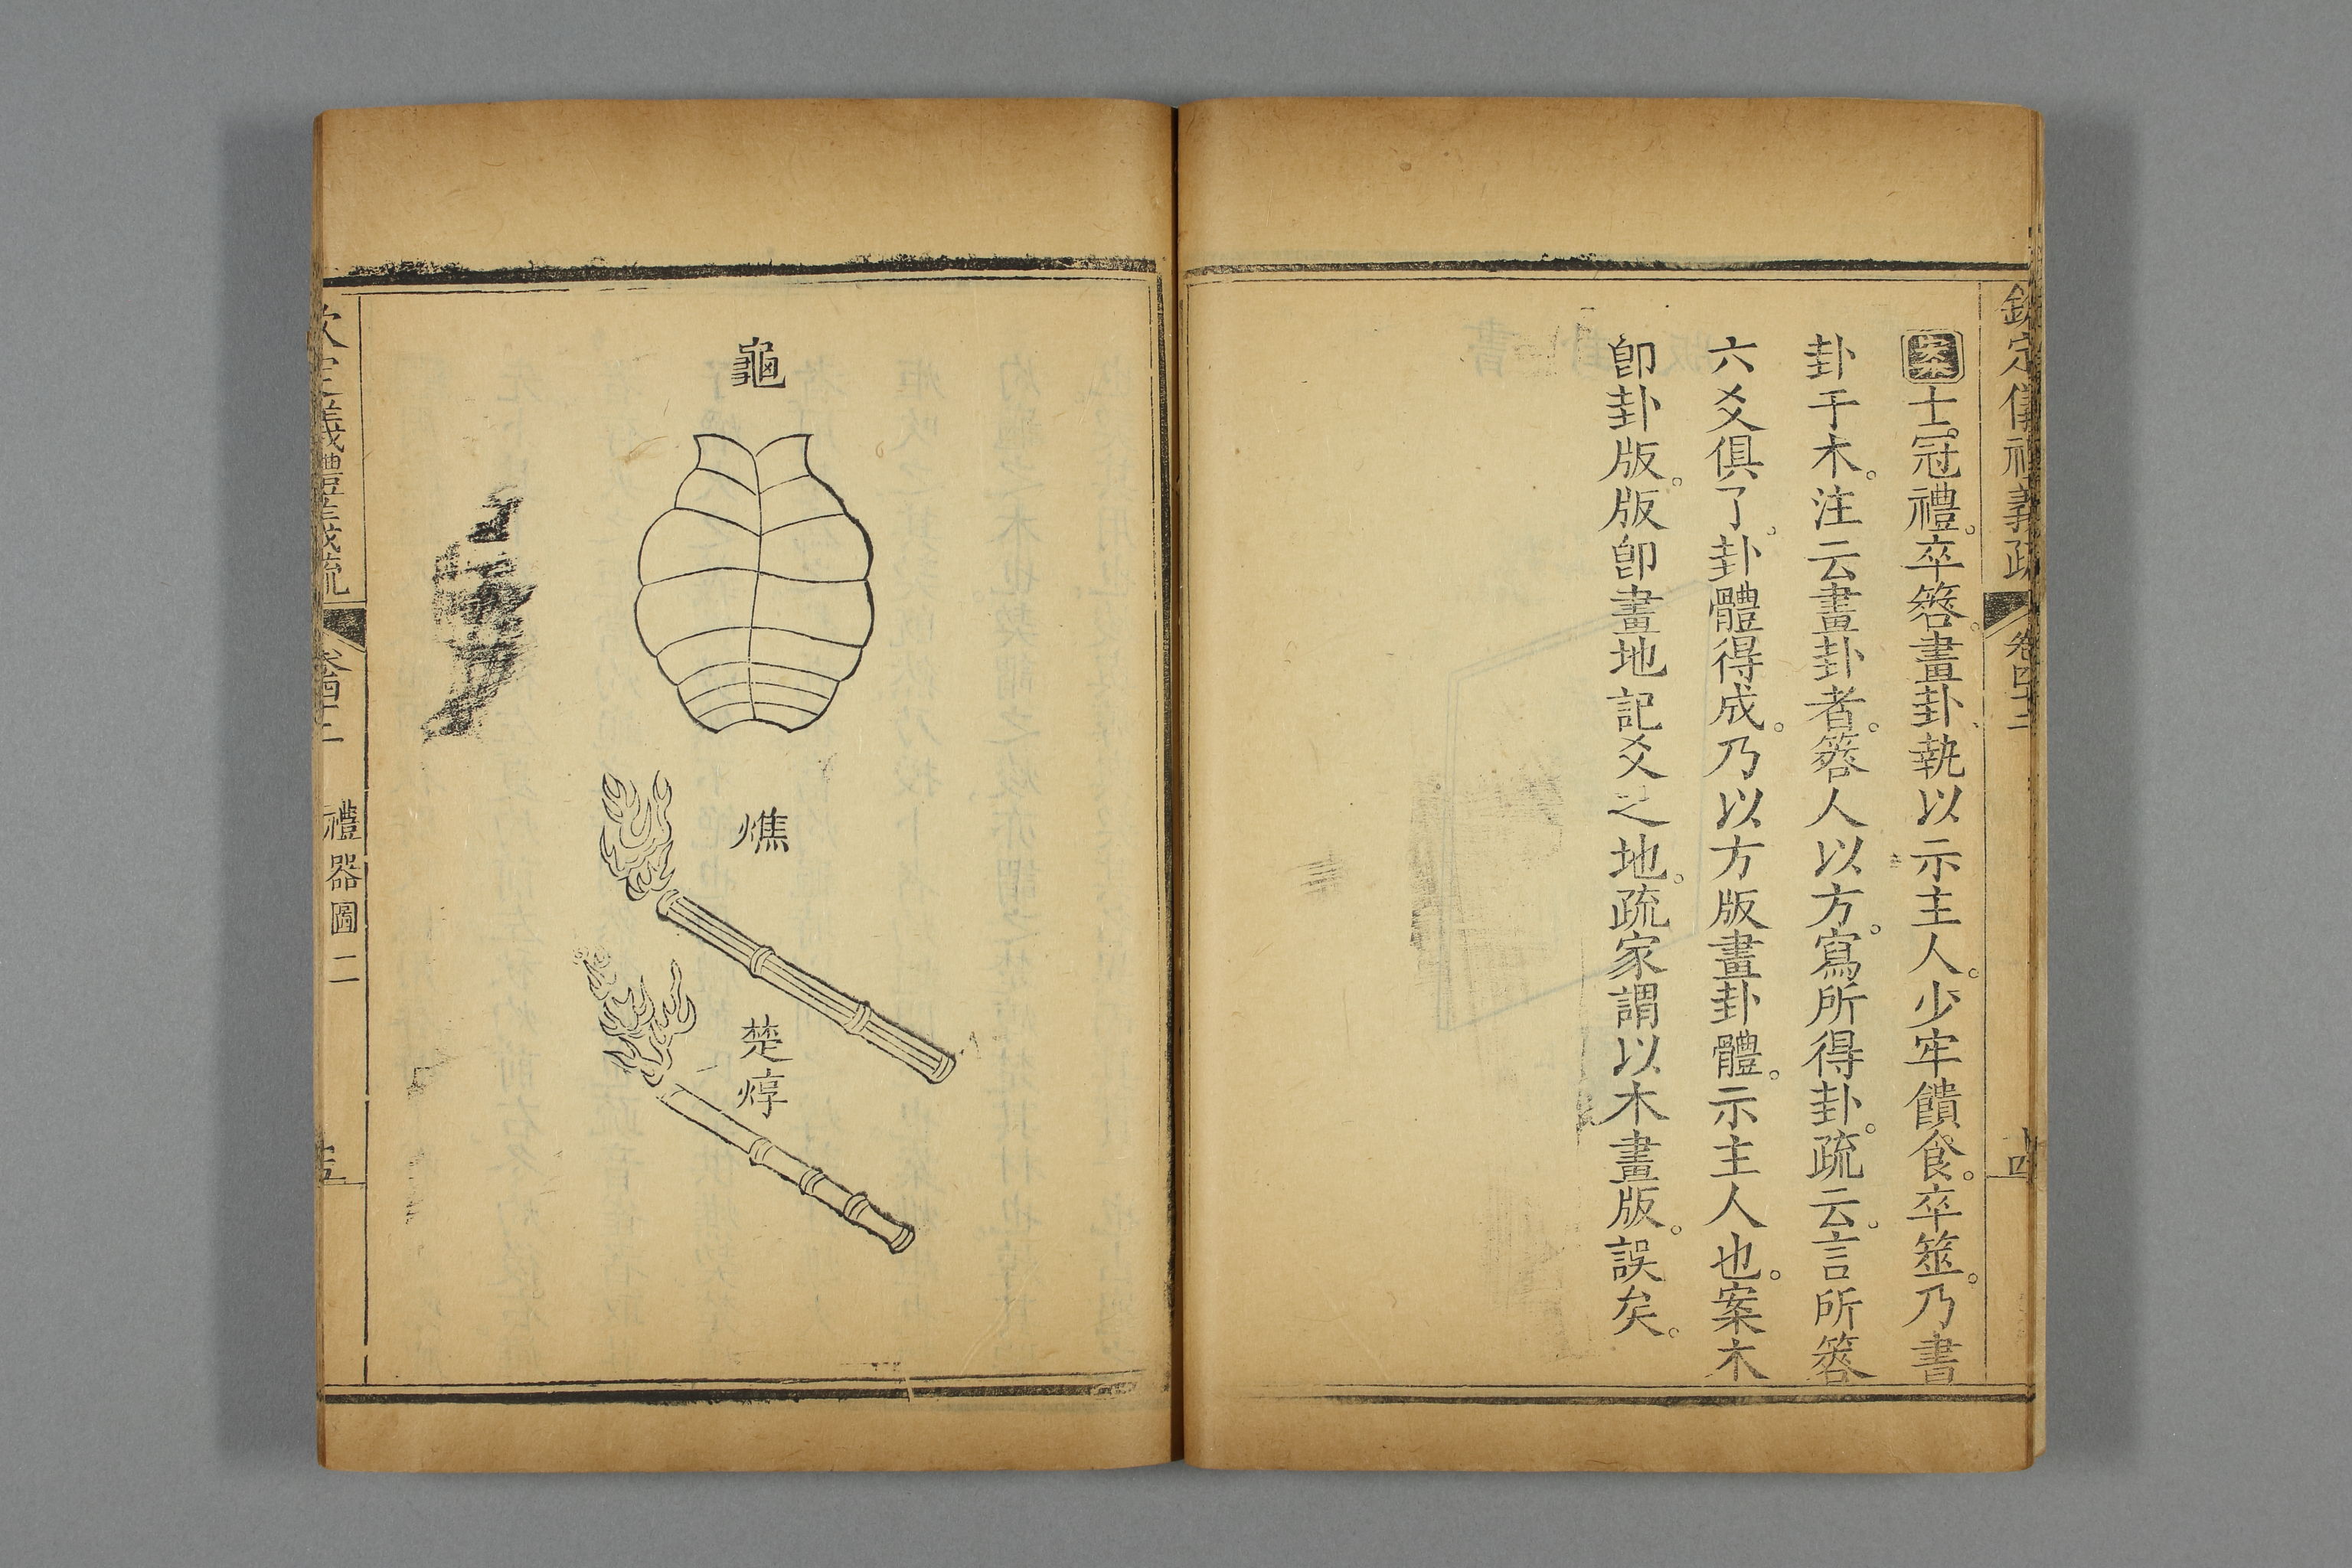 欽定儀禮義疏 卷四十二 十四
案士冠禮。卒筮。書卦執以示主人。少牢饋食。卒筮。乃書
卦于木。注云畫卦者。筮人以方。寫所得卦。疏云。言所筮
六爻俱了。卦體得成。乃以方版畫卦體。示主人也。案木
卽卦版。版卽畫地記爻之地。疏家謂以木畫版。誤矣。
龜
燋
楚焞
欽定儀禮義疏 卷四十二 禮器圖二